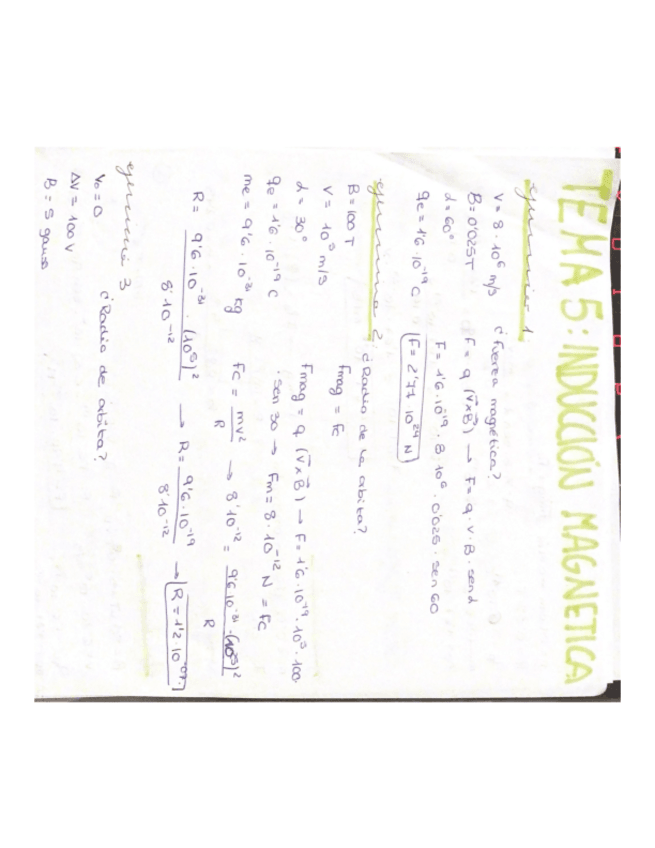 TEMA 5: INDUCCIÓN MAGNETICA
ejercicio 1
V = 8 · 10⁶ m/s ¿Fuerza magnética?
B = 0'025T F = q (V⃗xB⃗) → F = q · V · B · sen α
α = 60°
qe = 1'6 · 10⁻¹⁹ C F = 1'6 · 10⁻¹⁹ · 8 · 10⁶ · 0'025 · sen 60
F = 2'77 · 10²⁴ N
2 ¿Radio de la orbita?
B = 100 T Fmag = Fc
V = 10⁵ m/s
α = 30° Fmag = q (V⃗xB⃗) → F = 1'6 · 10⁻¹⁹ · 10⁵ · 100 ·
qe = 1'6 · 10⁻¹⁹ C · sen 30 → Fm = 8 · 10⁻¹² N = Fc
me = 9'6 · 10⁻³¹ kg Fc = mv²/R → 8·10⁻¹² = 9'6·10⁻³¹ · (10⁵)²/R
R = 9'6 · 10⁻³¹ · (10⁵)²/8·10⁻¹² → R = 9'6 · 10⁻¹⁹/8·10⁻¹² → R = 1'2 · 10⁻⁰⁷
ejercicio 3
V₀ = 0 ¿Radio de orbita?
ΔV = 100 V
B = 5 gauss